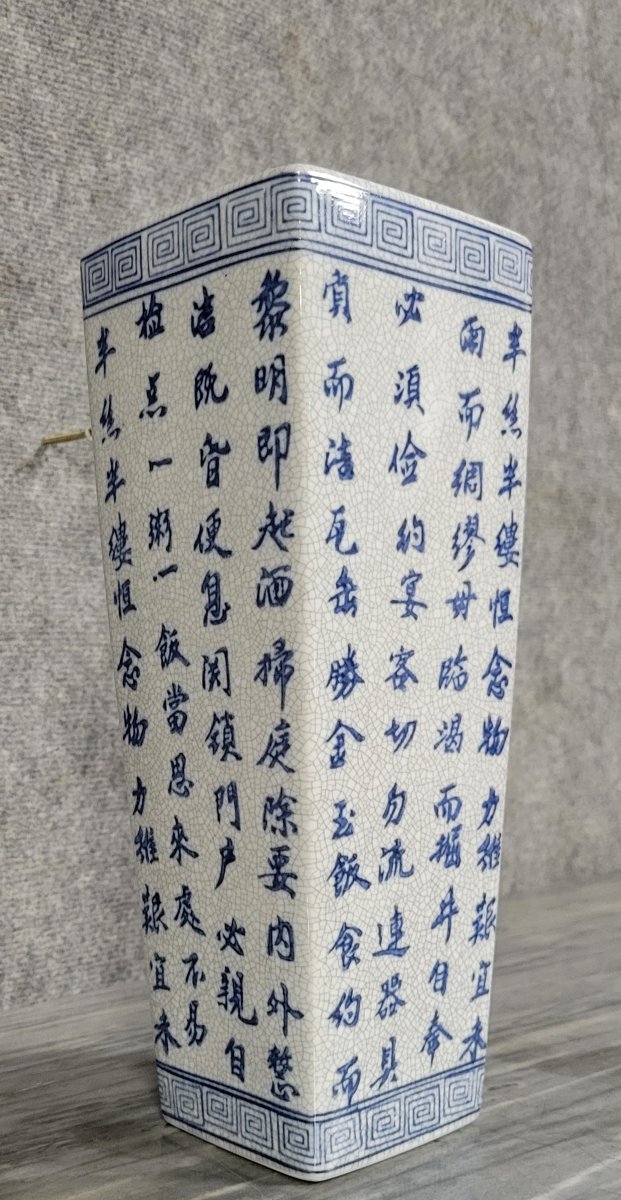 黎明即起洒掃庭除要内外整
洁既昏便息関鎖門户必親自
检点一粥一飯當思來處不易
半絲半縷恒念物力維艱宜未
半絲半縷恒念物力維艱宜未
雨而綢繆毋臨渴而掘井自奉
必須儉約宴客切勿流連器具
質而洁瓦缶勝金玉飯食約而